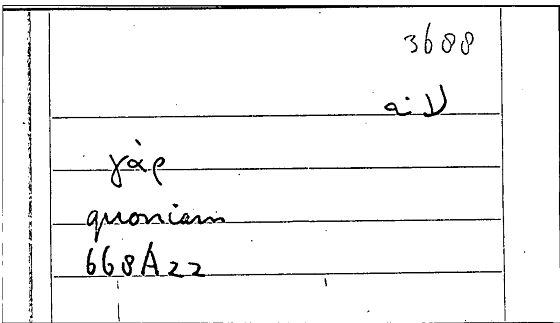 3688
a. V
γὰρ
quoniam
668A22